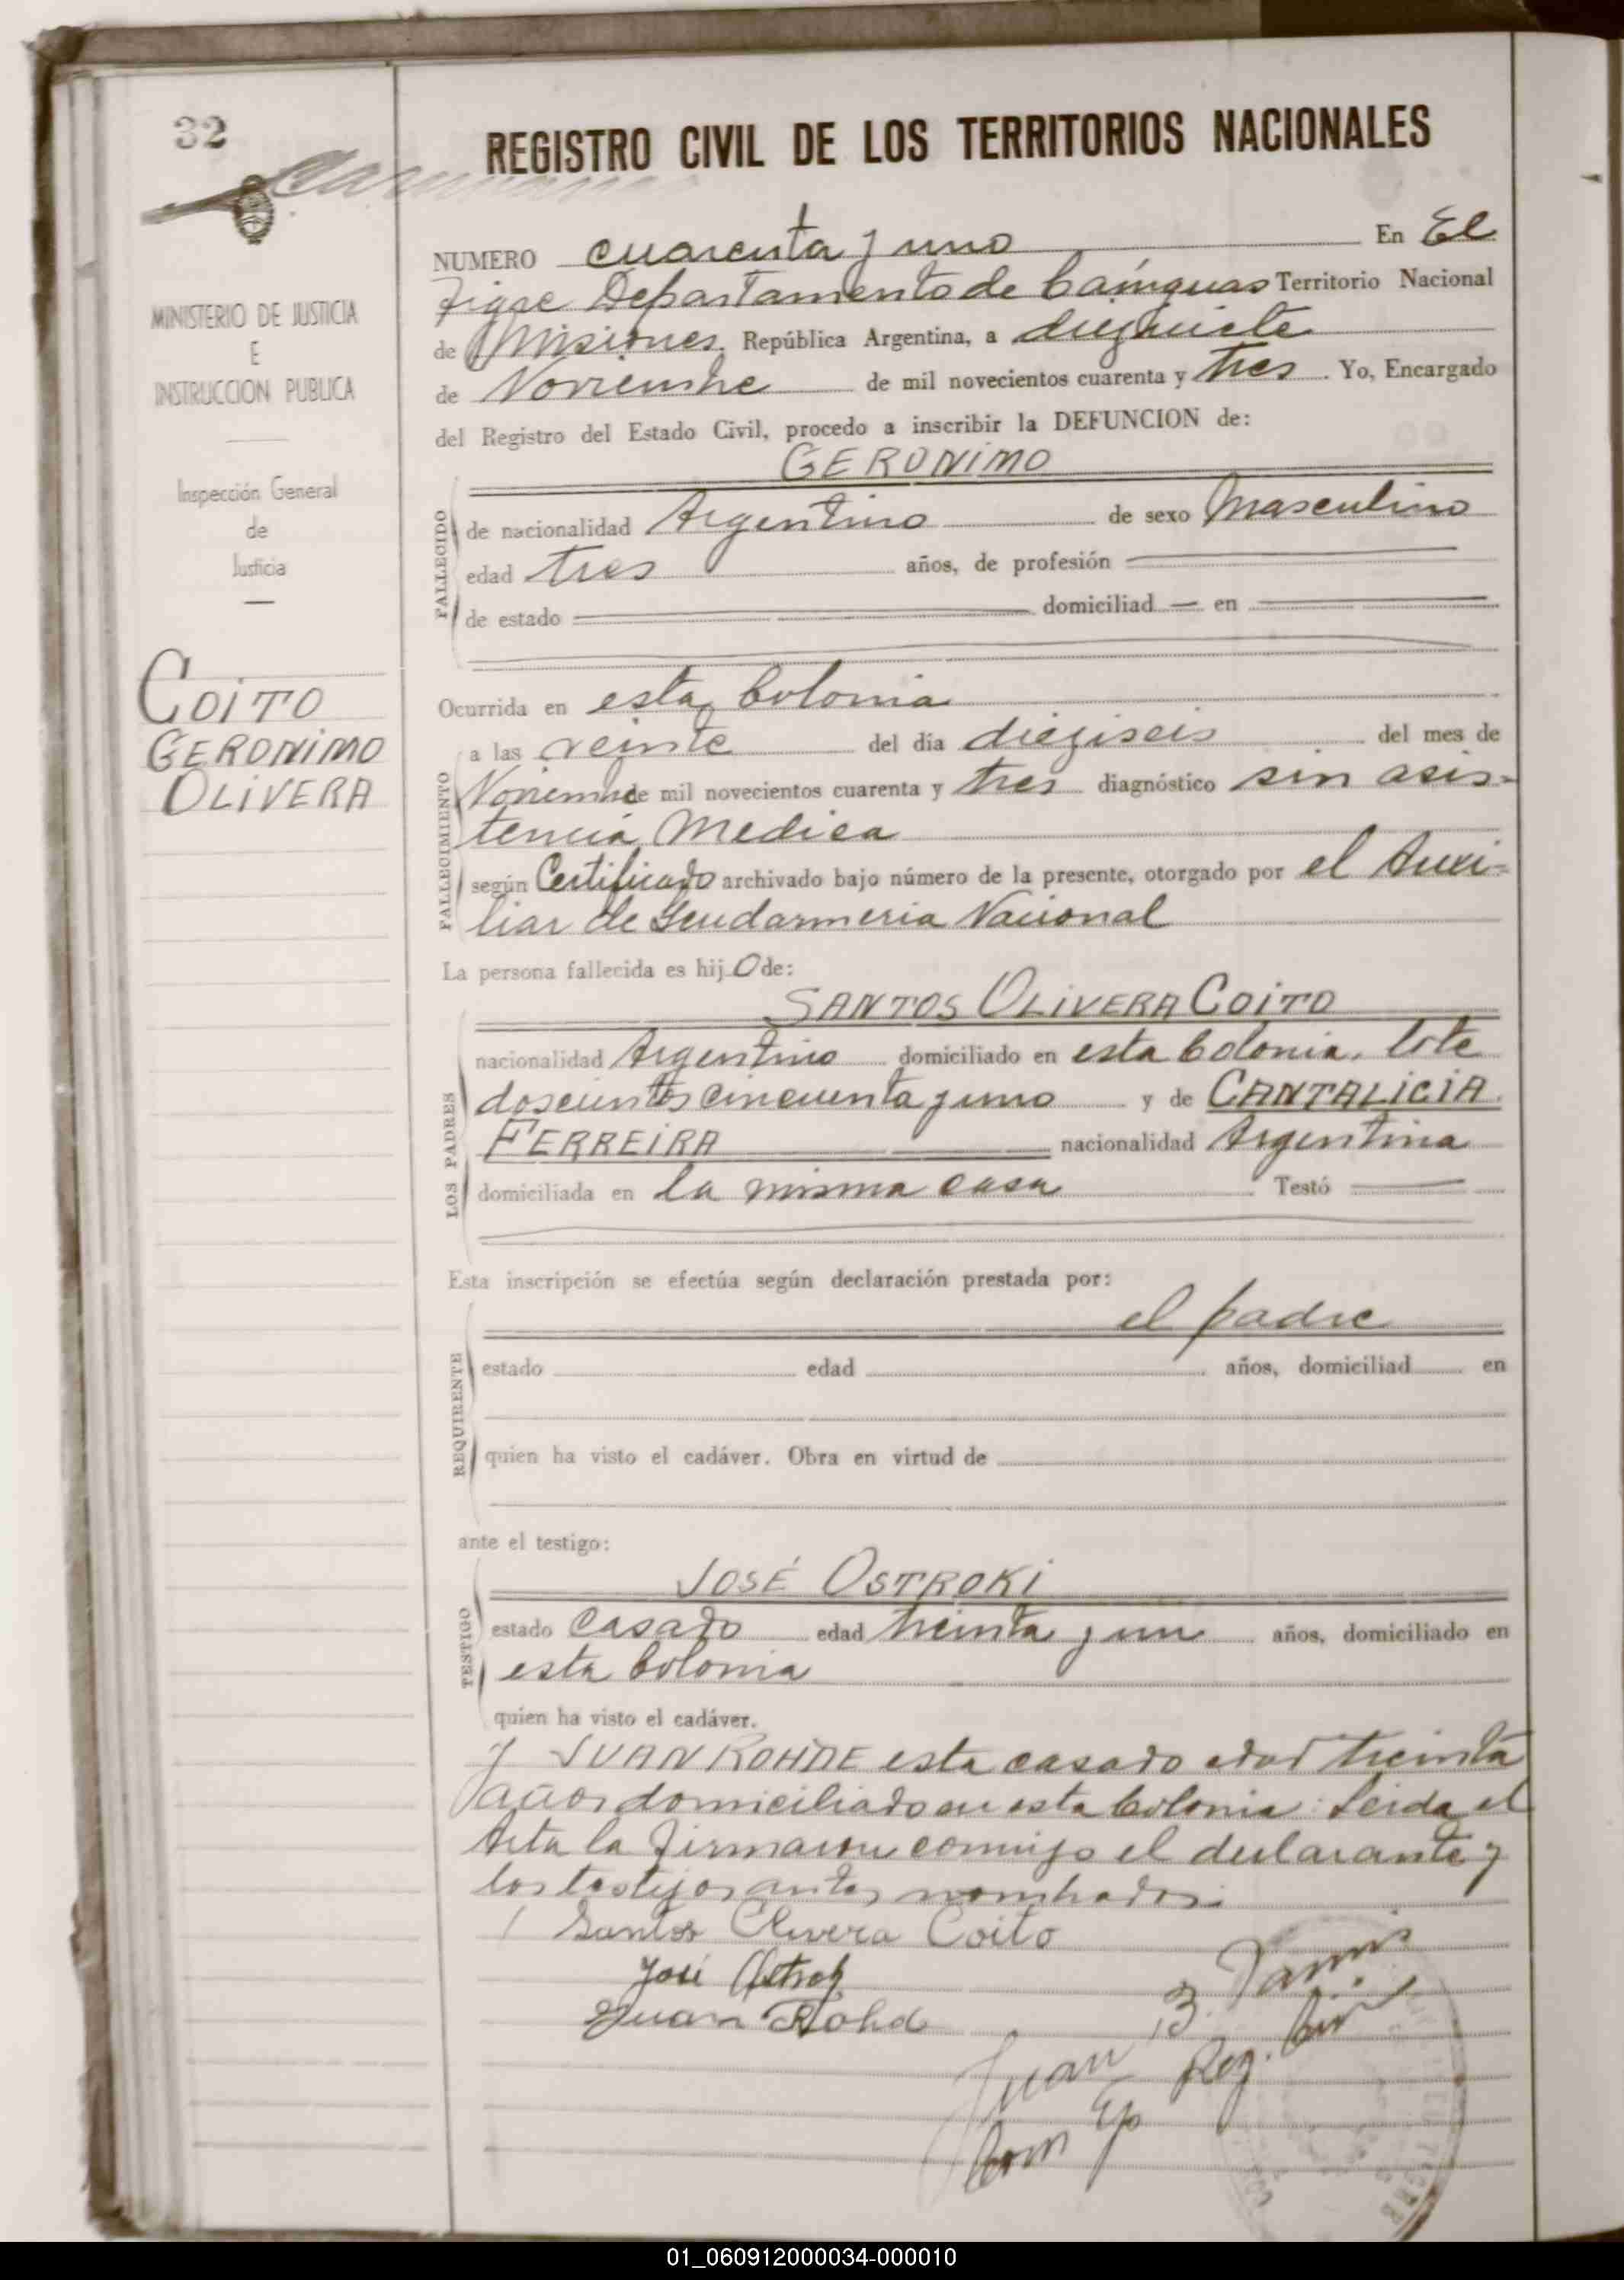 32
REGISTRO CIVIL DE LOS TERRITORIOS NACIONALES
MINISTERIO DE JUSTICIA
E
INSTRUCCION PUBLICA
Inspección General
de
Justicia
COITO
GERONIMO
OLIVERA
NUMERO cuarenta y uno En El
Tigre Departamento de Cainguas Territorio Nacional
de Misiones República Argentina, a diezisiete
de Noviembre de mil novecientos cuarenta y tres. Yo, Encargado
del Registro del Estado Civil, procedo a inscribir la DEFUNCION de:
GERONIMO
FALLECIDO
de nacionalidad Argentino de sexo Masculino
edad tres años, de profesión
de estado domiciliad — en
Ocurrida en esta Colonia
FALLECIMIENTO
a las veinte del día dieziseis del mes de
Noviembre de mil novecientos cuarenta y tres diagnóstico sin asis-
tencia Medica
según Certificado archivado bajo número de la presente, otorgado por el Auxi-
liar de Gendarmeria Nacional
La persona fallecida es hijo de:
SANTOS OLIVERA COITO
LOS PADRES
nacionalidad Argentino domiciliado en esta Colonia. lote
doscientos cincuenta y uno y de CANTALICIA
FERREIRA nacionalidad Argentina
domiciliada en la misma casa Testó
Esta inscripción se efectúa según declaración prestada por:
el padre
REQUIRENTE
estado edad años, domiciliad en
quien ha visto el cadáver. Obra en virtud de
ante el testigo:
JOSÉ OSTROKI
TESTIGO
estado casado edad treinta y un años, domiciliado en
esta Colonia
quien ha visto el cadáver.
y JUAN ROHDE esta casado edad treinta
años domiciliado en esta Colonia: Leida el
Acta la firmaron conmigo el declarante y
los testigos antes nombrados.
Santos Olivera Coito
José
Juan Rohd
Juan B.
Reg. Civ
01_060912000034-000010